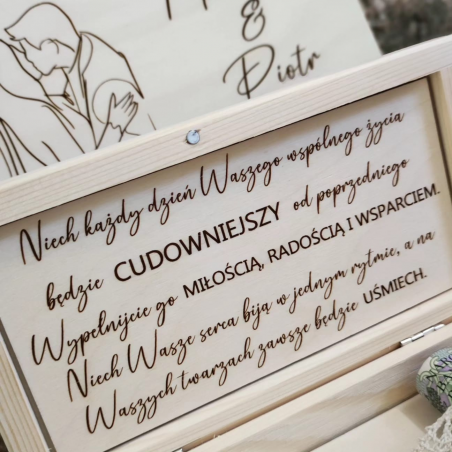 &
Piotr
Niech każdy dzień Waszego wspólnego życia
będzie CUDOWNIEJSZY od poprzedniego
Wypełnijcie go MIŁOŚCIĄ, RADOŚCIĄ I WSPARCIEM.
Niech Wasze serca biją w jednym rytmie, a na
Waszych twarzach zawsze będzie UŚMIECH.